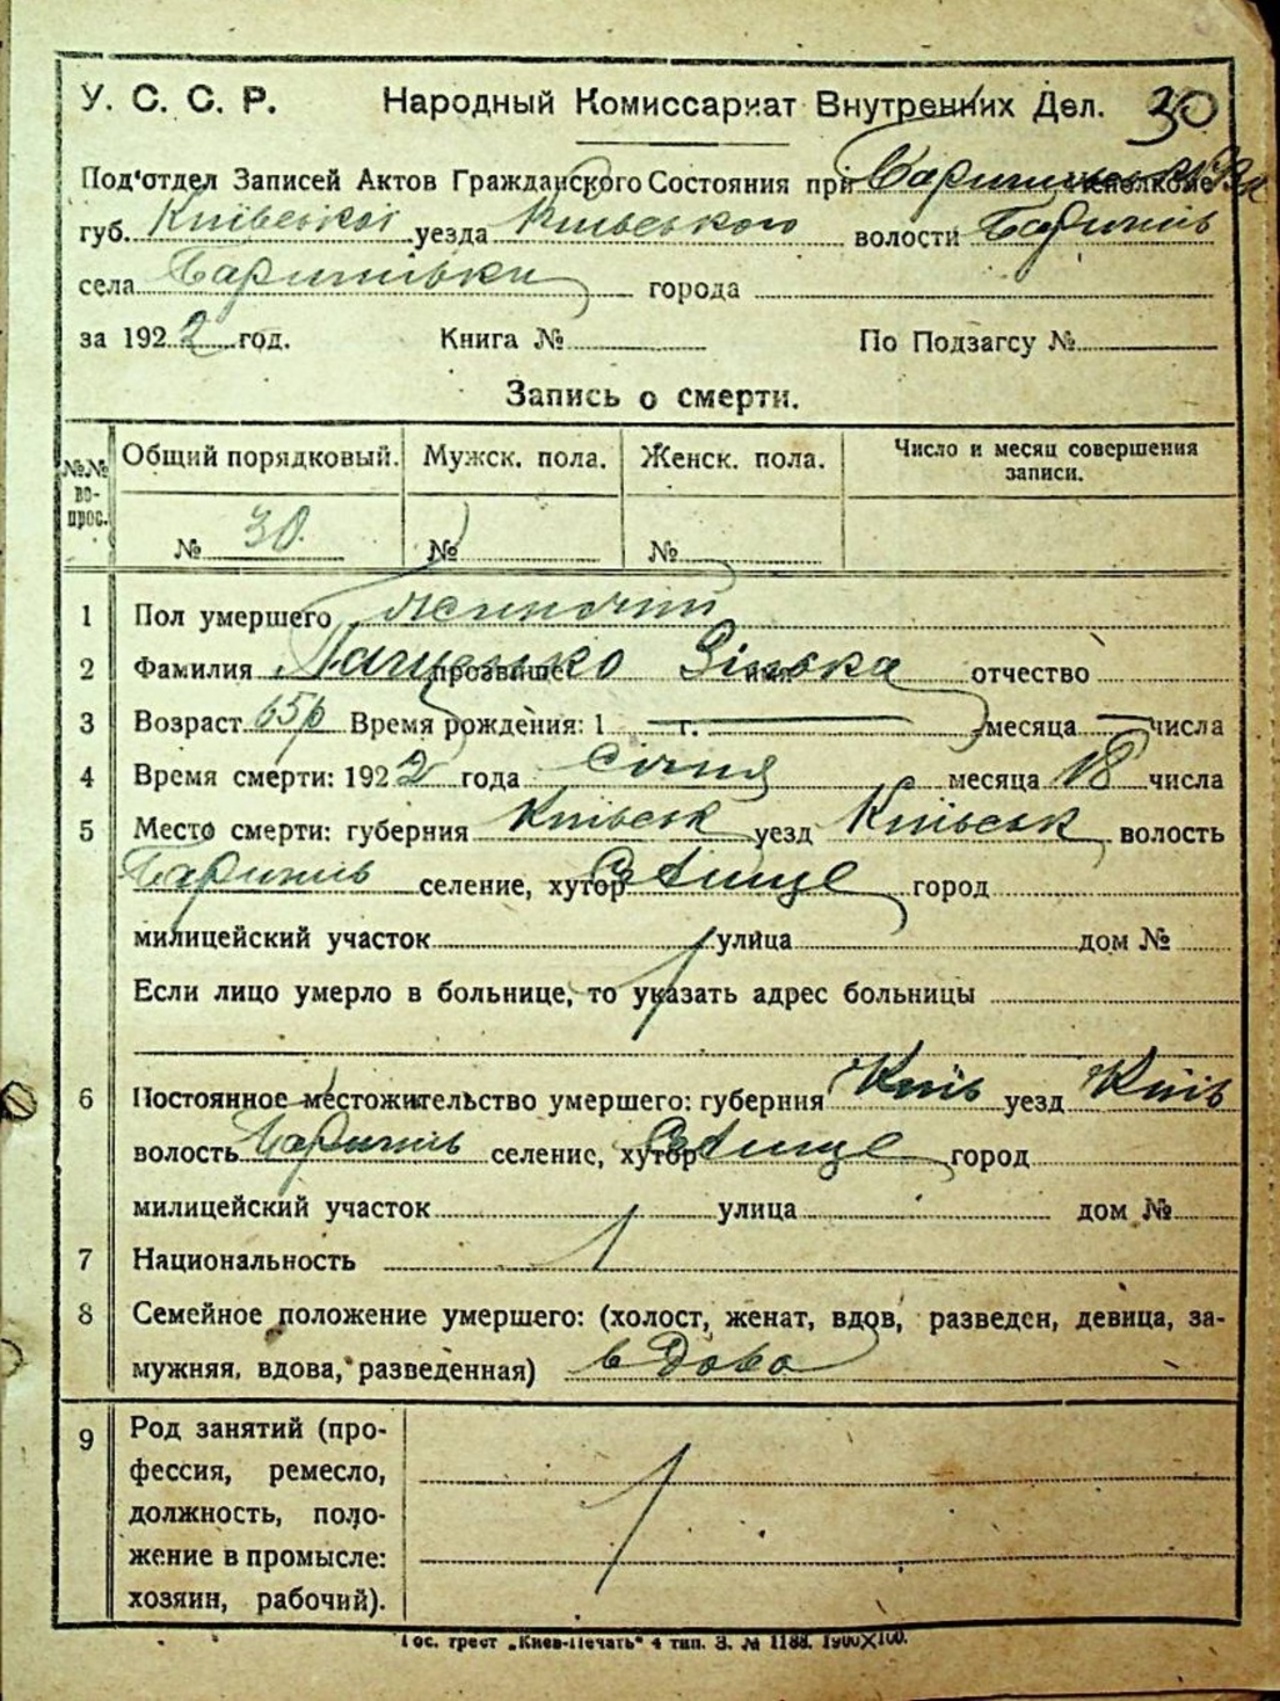 У. С. С. Р. Народный Комиссариат Внутренних Дел. 30
Под'отдел Записей Актов Гражданского Состояния при Исполкоме
губ. Київської уезда Київського волости Баришів
села Баришівки города
за 1922 год. Книга № По Подзагсу №
Запись о смерти.
№№ во-прос. Общий порядковый. Мужск. пола. Женск. пола. Число и месяц совершения
записи.
№ 30. № №
1 Пол умершего
2 Фамилия прозвище Зінька отчество
3 Возраст 65р Время рождения: 1 г. месяца числа
4 Время смерти: 1922 года Січня месяца 18 числа
5 Место смерти: губерния Київськ уезд Київськ волость
Баришів селение, хутор Селище город
милицейский участок улица дом №
Если лицо умерло в больнице, то указать адрес больницы
6 Постоянное местожительство умершего: губерния Київ уезд Київ
волость Баришів селение, хутор Селище город
милицейский участок улица дом №
7 Национальность
8 Семейное положение умершего: (холост, женат, вдов, разведен, девица, за-
мужняя, вдова, разведенная) вдова
9 Род занятий (про-
фессия, ремесло,
должность, поло-
жение в промысле:
хозяин, рабочий).
Гос. трест „Киев-Печать" 4 тип. З. № 1188. 1900×100.